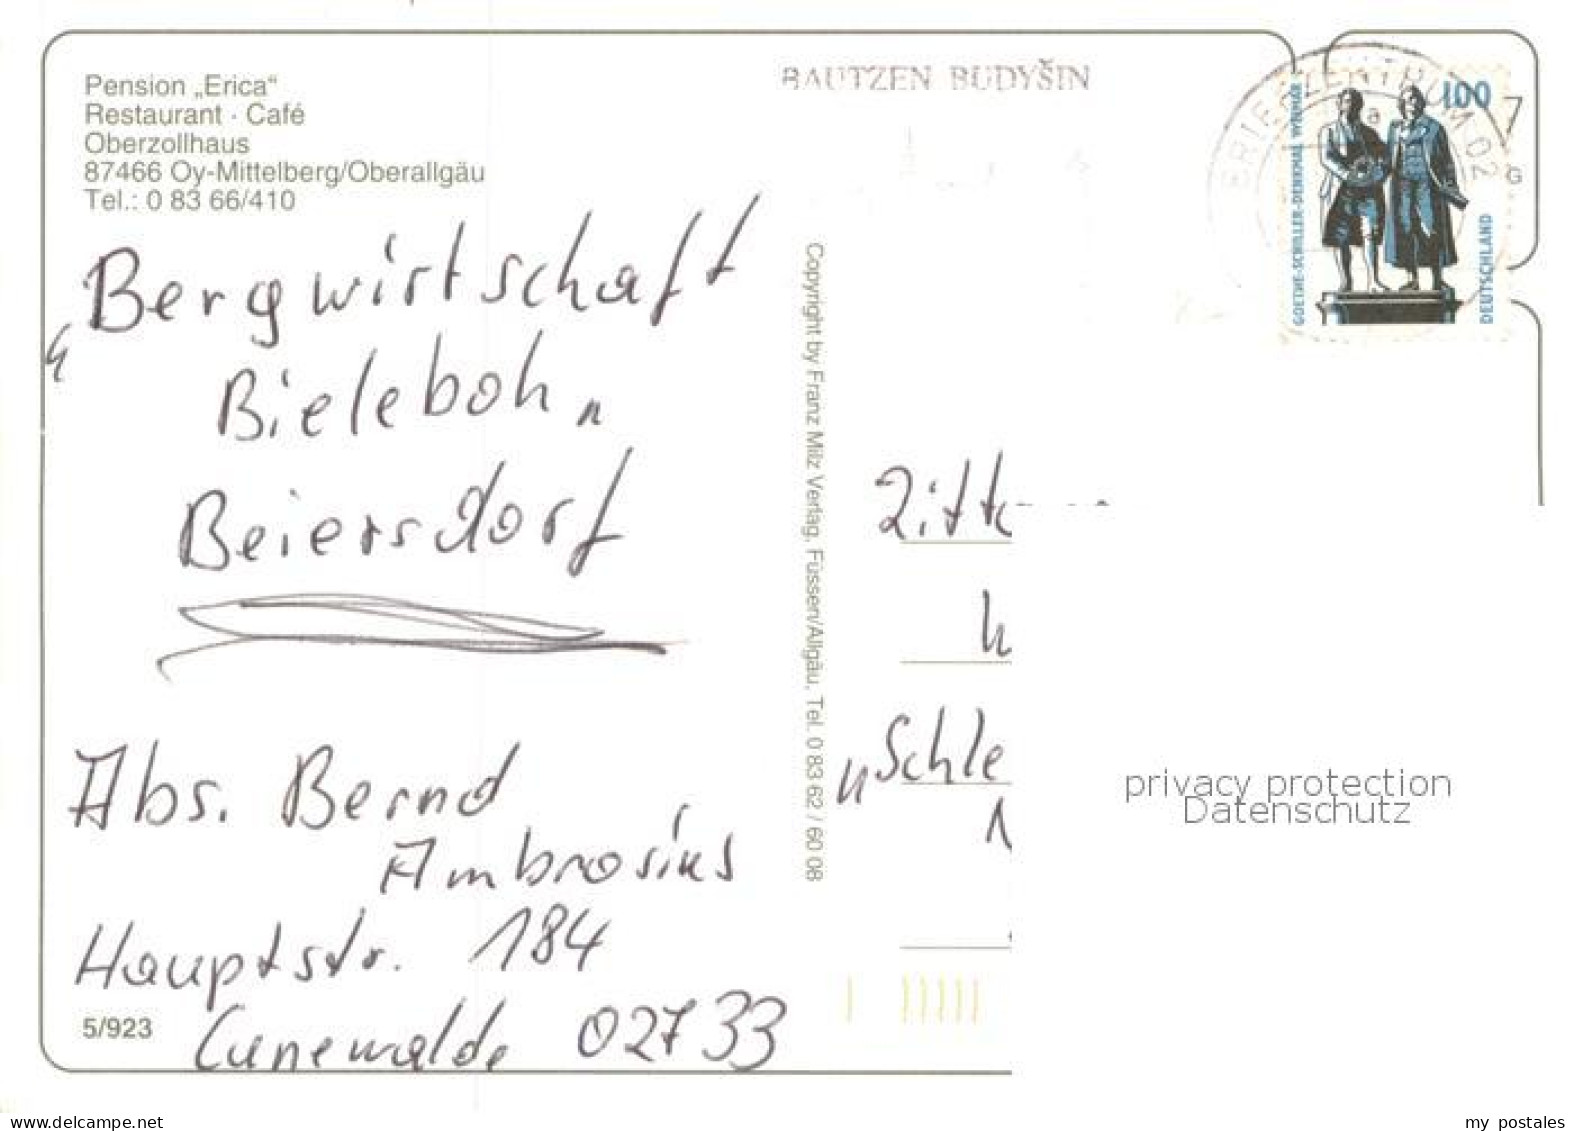 Pension „Erica“
Restaurant · Café
Oberzollhaus
87466 Oy-Mittelberg/Oberallgäu
Tel.: 0 83 66/410
„Bergwirtschaft
Bieleboh"
Beiersdorf
Abs. Bernd
Ambrosius
Hauptstr. 184
Cunewalde 02733
5/923
Copyright by Franz Milz Verlag, Füssen/Allgäu, Tel. 0 83 62 / 60 08
BAUTZEN BUDYŠIN
BRIEFZENTRUM 02
a
GOETHE-SCHILLER-DENKMAL WEIMAR
100
DEUTSCHLAND
G
Zitt
"Schle
privacy protection
Datenschutz
www.delcampe.net
my postales